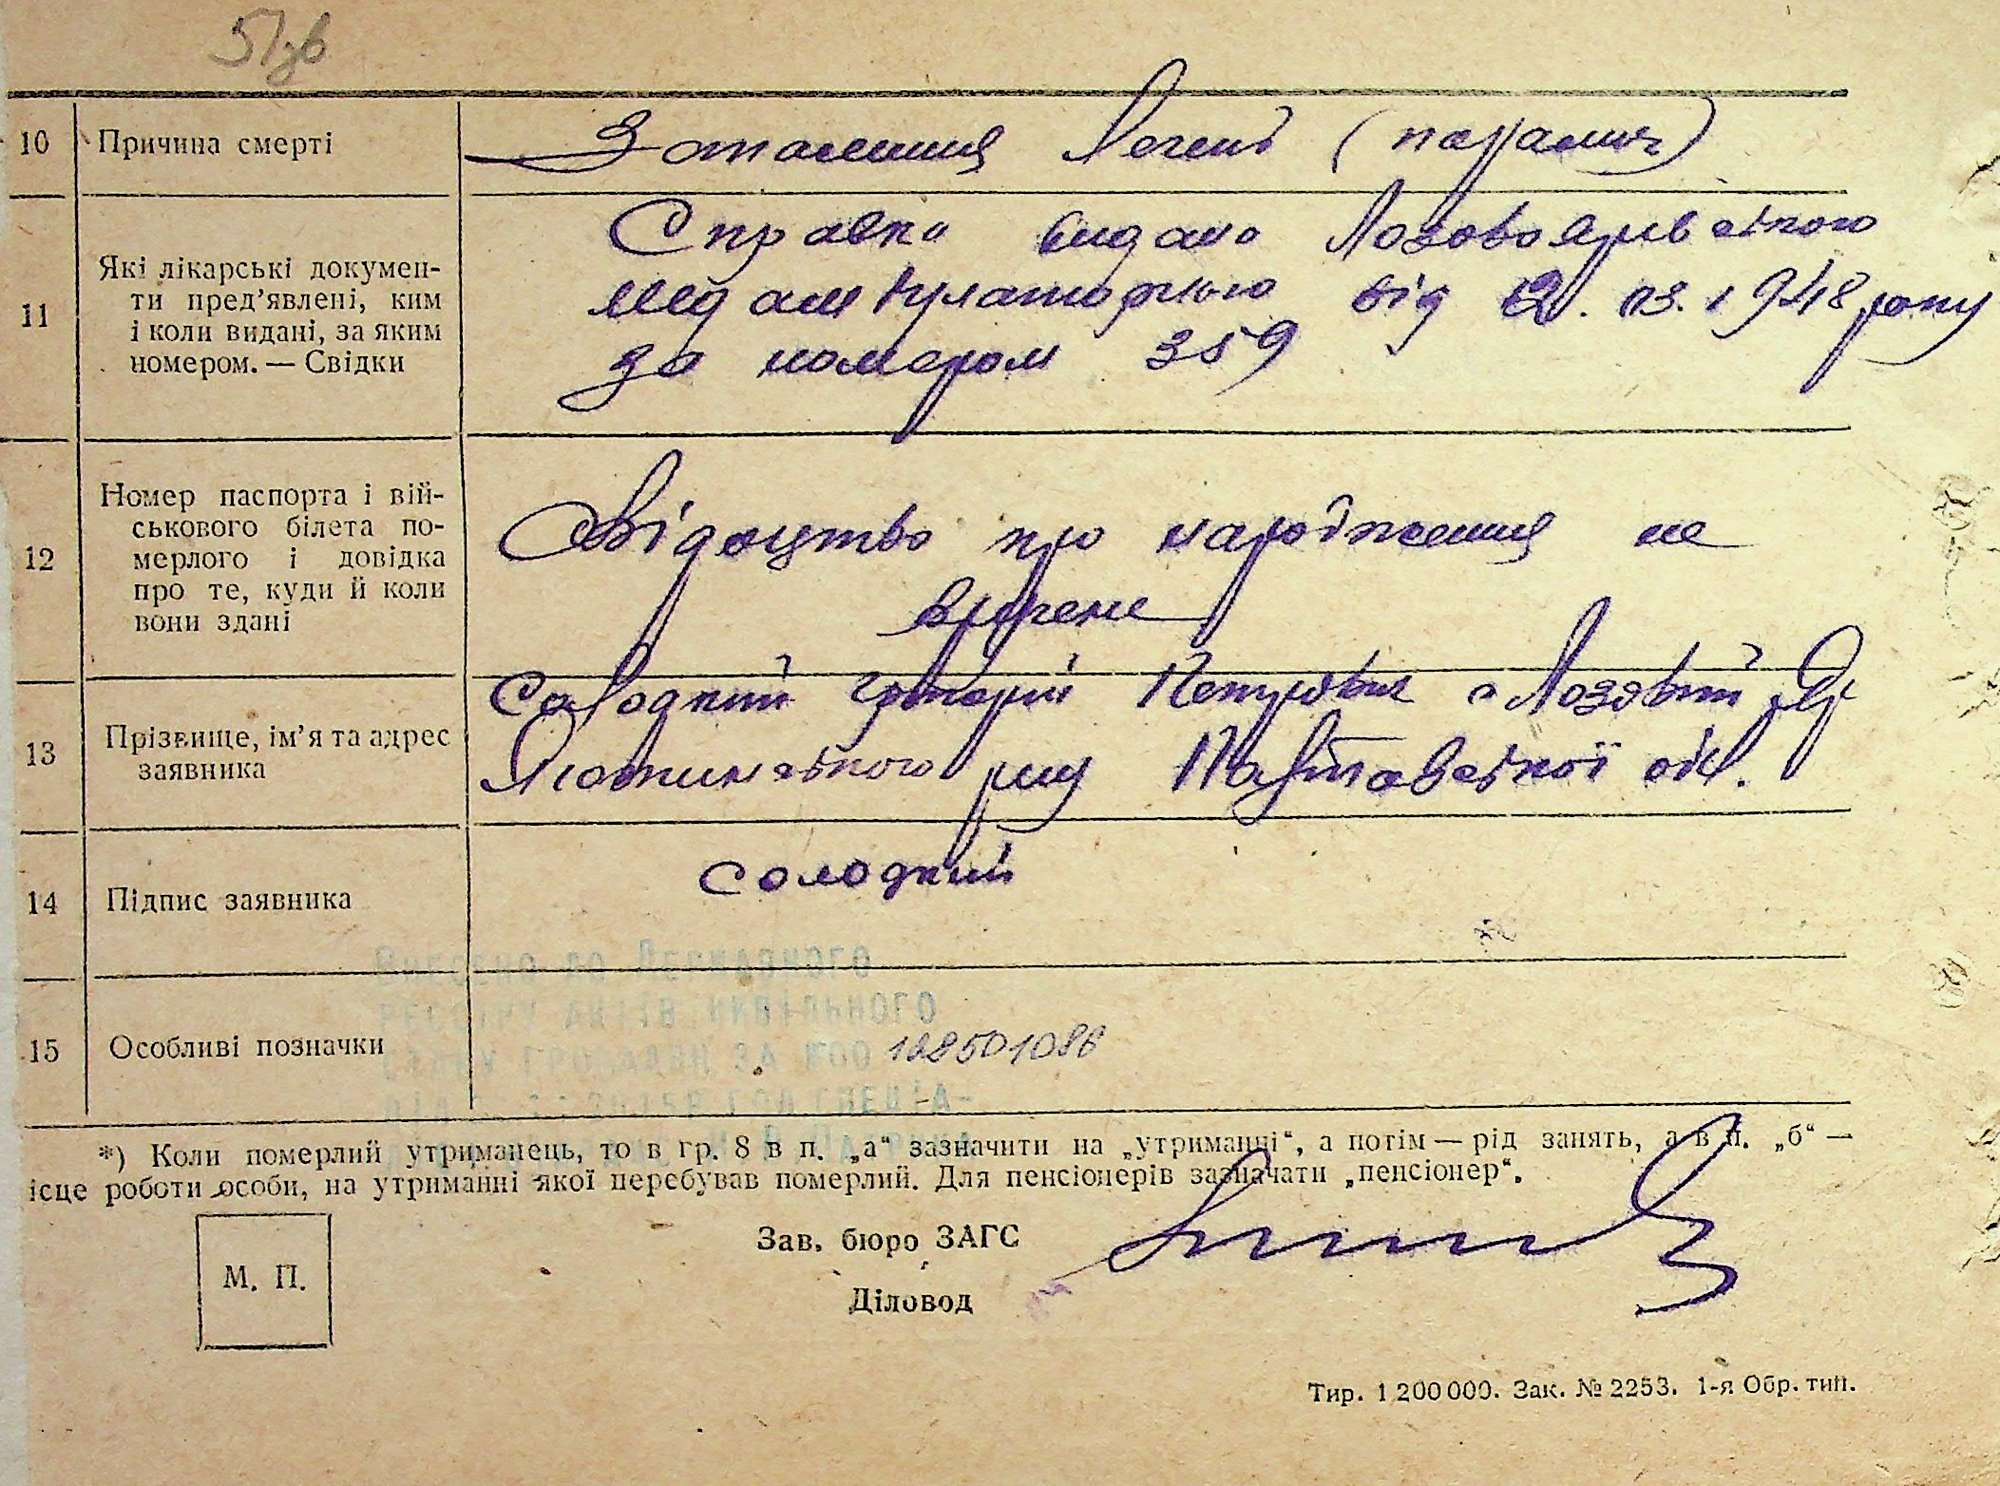 51зв
10 Причина смерті Запалення легень (параліч)
11 Які лікарські докумен-
ти пред’явлені, ким
і коли видані, за яким
номером. — Свідки
Справка видана Лозовоярівського
Мед амбулаторією від 12. 03. 1948 року
за номером 359
12 Номер паспорта і вій-
ськового білета по-
мерлого і довідка
про те, куди й коли
вони здані
Свідоцтво про народження не
вручене
13 Прізвище, ім’я та адрес
заявника
Солодкий Григорій Петрович с Лозовий Яр
Яготинського р-ну Полтавської обл.
14 Підпис заявника Солодкий
Внесено до Державного
реєстру актів цивільного
стану громадян за №00 128501086
15 Особливі позначки
*) Коли померлий утриманець, то в гр. 8 в п. „а“ зазначити на „утриманні“, а потім — рід занять, а в п. „б“ —
ісце роботи особи, на утриманні якої перебував померлий. Для пенсіонерів зазначати „пенсіонер“.
М. П.
Зав. бюро ЗАГС
Діловод
Тир. 1 200 000. Зак. № 2253. 1-я Обр. тип.